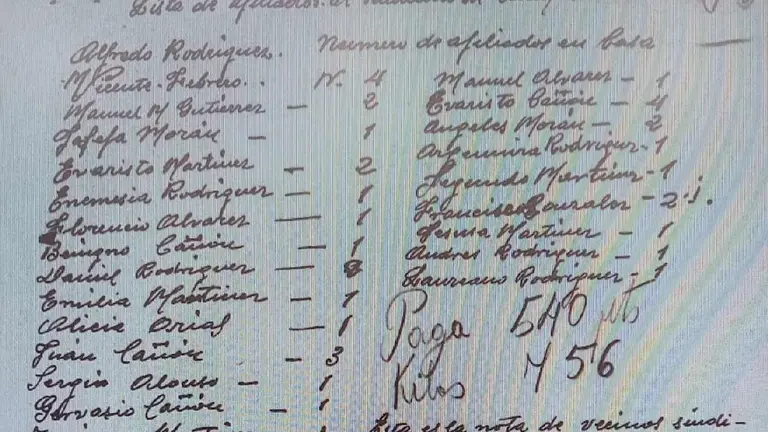 Lista de afiliados al
Alfredo Rodriguez. Numero de afiliados en Casa —
Vicente Febrero. . N. 4
Manuel M Gutierrez — 2
Morán — 1
Evaristo Martinez — 2
Enemesia Rodriguez — 1
Florencio Alvarez — 1
Beingno Cañón — 1
Daniel Rodriguez —
Emilia Martinez — 1
Alicia Arias — 1
Juan Cañón — 3
Sergio Alonso — 1
Gervasio Cañón — 1
Manuel Alvarez — 1
Evaristo Cañón — 4
Angeles Morán — 2
Argemira Rodriguez - 1
Segundo Martinez - 1
Francisco Gonzalez - 2
Jesusa Martinez — 1
Andres Rodriguez — 1
Laureano Rodriguez - 1
Paga 540 pts
Kilos 756
Esta es la nota de vecinos sindi-